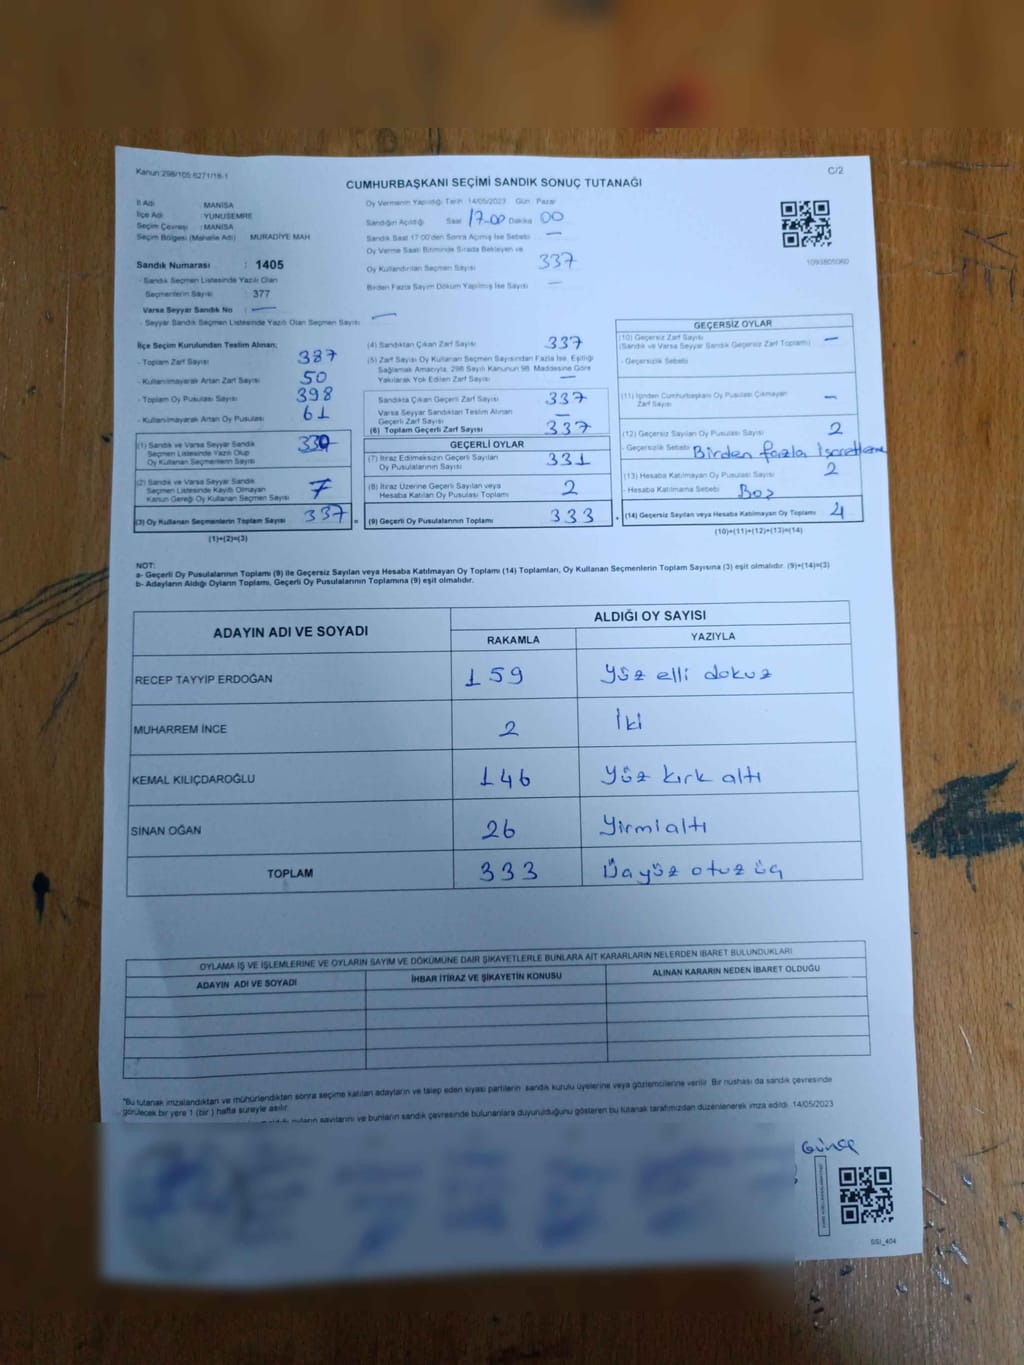 Kanun 298/105 6271/18-1
C/2
CUMHURBAŞKANI SEÇİMİ SANDIK SONUÇ TUTANAĞI
İl Adı : MANİSA
İlçe Adı : YUNUSEMRE
Seçim Çevresi : MANİSA
Seçim Bölgesi (Mahalle Adı) MURADİYE MAH
Sandık Numarası : 1405
- Sandık Seçmen Listesinde Yazılı Olan
Seçmenlerin Sayısı : 377
Varsa Seyyar Sandık No : —
- Seyyar Sandık Seçmen Listesinde Yazılı Olan Seçmen Sayısı —
Oy Vermenin Yapıldığı Tarih :14/05/2023 Gün : Pazar
Sandığın Açıldığı Saat 17.00 Dakika 00
Sandık Saat 17:00'den Sonra Açılmış İse Sebebi —
Oy Verme Saati Bitiminde Sırada Bekleyen ve
Oy Kullandırılan Seçmen Sayısı 337
Birden Fazla Sayım Döküm Yapılmış İse Sayısı —
1093805060
İlçe Seçim Kurulundan Teslim Alınan;
- Toplam Zarf Sayısı 387
- Kullanılmayarak Artan Zarf Sayısı 50
- Toplam Oy Pusulası Sayısı 398
- Kullanılmayarak Artan Oy Pusulası 61
(1) Sandık ve Varsa Seyyar Sandık
Seçmen Listesinde Yazılı Olup
Oy Kullanan Seçmenlerin Sayısı 330
(2) Sandık ve Varsa Seyyar Sandık
Seçmen Listesinde Kayıtlı Olmayan
Kanun Gereği Oy Kullanan Seçmen Sayısı 7
(3) Oy Kullanan Seçmenlerin Toplam Sayısı 337 =
(1)+(2)=(3)
(4) Sandıktan Çıkan Zarf Sayısı 337
(5) Zarf Sayısı Oy Kullanan Seçmen Sayısından Fazla İse, Eşitliği
Sağlamak Amacıyla, 298 Sayılı Kanunun 98. Maddesine Göre
Yakılarak Yok Edilen Zarf Sayısı —
Sandıkta Çıkan Geçerli Zarf Sayısı 337
Varsa Seyyar Sandıktan Teslim Alınan
Geçerli Zarf Sayısı —
(6) Toplam Geçerli Zarf Sayısı 337
GEÇERLİ OYLAR
(7) İtiraz Edilmeksizin Geçerli Sayılan
Oy Pusulalarının Sayısı 331
(8) İtiraz Üzerine Geçerli Sayılan veya
Hesaba Katılan Oy Pusulası Toplamı 2
(9) Geçerli Oy Pusulalarının Toplamı 333 +
GEÇERSİZ OYLAR
(10) Geçersiz Zarf Sayısı
(Sandık ve Varsa Seyyar Sandık Geçersiz Zarf Toplamı) —
- Geçersizlik Sebebi
(11) İçinden Cumhurbaşkanı Oy Pusulası Çıkmayan
Zarf Sayısı —
(12) Geçersiz Sayılan Oy Pusulası Sayısı 2
- Geçersizlik Sebebi Birden fazla İşaretleme
(13) Hesaba Katılmayan Oy Pusulası Sayısı 2
- Hesaba Katılmama Sebebi Boş
(14) Geçersiz Sayılan veya Hesaba Katılmayan Oy Toplamı 4
(10)+(11)+(12)+(13)=(14)
NOT:
a- Geçerli Oy Pusulalarının Toplamı (9) ile Geçersiz Sayılan veya Hesaba Katılmayan Oy Toplamı (14) Toplamları, Oy Kullanan Seçmenlerin Toplam Sayısına (3) eşit olmalıdır. (9)+(14)=(3)
b- Adayların Aldığı Oyların Toplamı, Geçerli Oy Pusulalarının Toplamına (9) eşit olmalıdır.
ADAYIN ADI VE SOYADI
ALDIĞI OY SAYISI
RAKAMLA YAZIYLA
RECEP TAYYİP ERDOĞAN 159 Yüz elli dokuz
MUHARREM İNCE 2 İki
KEMAL KILIÇDAROĞLU 146 Yüz kırk altı
SİNAN OĞAN 26 Yirmialtı
TOPLAM 333 Üçyüz otuz üç
OYLAMA İŞ VE İŞLEMLERİNE VE OYLARIN SAYIM VE DÖKÜMÜNE DAİR ŞİKAYETLERLE BUNLARA AİT KARARLARIN NELERDEN İBARET BULUNDUKLARI
ADAYIN ADI VE SOYADI İHBAR İTİRAZ VE ŞİKAYETİN KONUSU ALINAN KARARIN NEDEN İBARET OLDUĞU
"Bu tutanak imzalandıktan ve mühürlendikten sonra seçime katılan adayların ve talep eden siyasi partilerin sandık kurulu üyelerine veya gözlemcilerine verilir. Bir nüshası da sandık çevresinde
görülecek bir yere 1 (bir ) hafta süreyle asılır.
oyların sayılarını ve bunların sandık çevresinde bulunanlara duyurulduğunu gösteren bu tutanak tarafımızdan düzenlenerek imza edildi. 14/05/2023
SSI_404